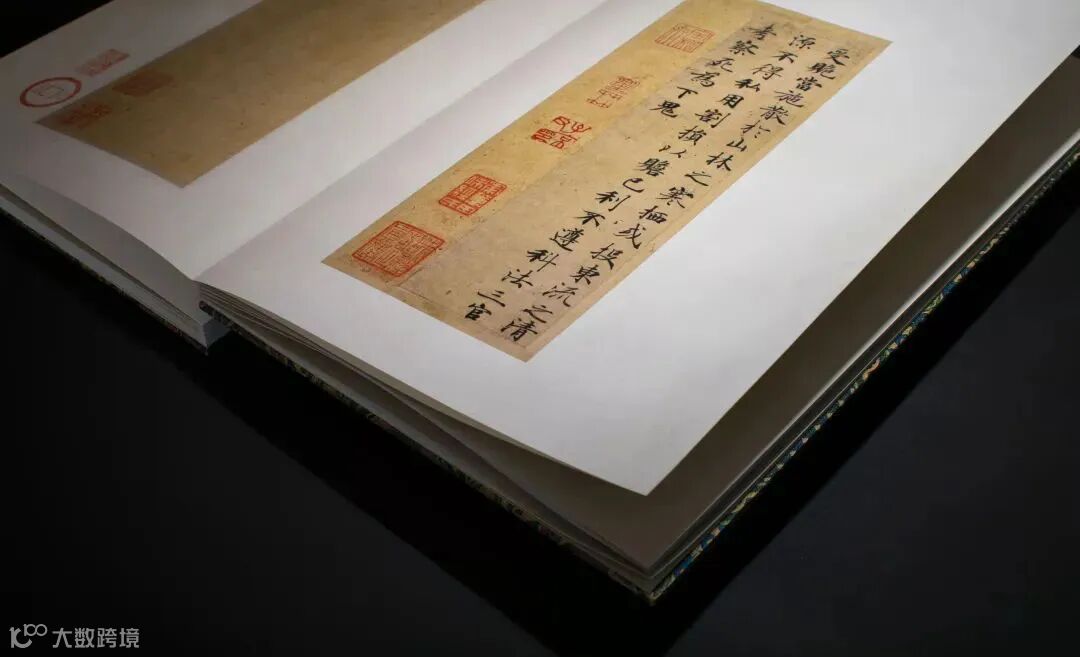 受脆當施散於山林之寒栖或投東流之清
源不得私用割損以贍己利不遵科法三官
考察死為下鬼
大数跨境